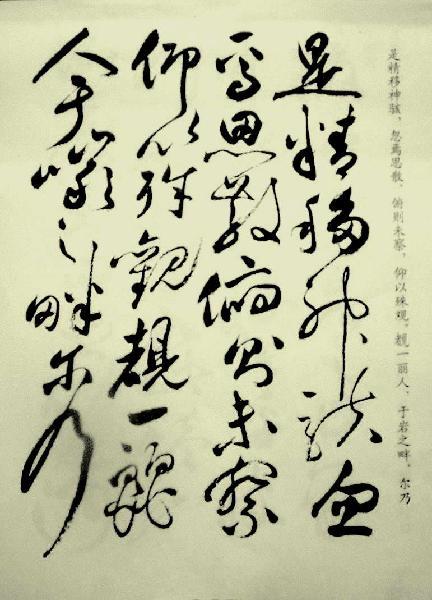 是精移神骇，忽焉思散，俯则未察，仰以殊观。覩一丽人，于岩之畔，尔乃
是精移神駭忽
焉思散俯則未察
仰以殊觀覩一麗
人于巖之畔尔乃